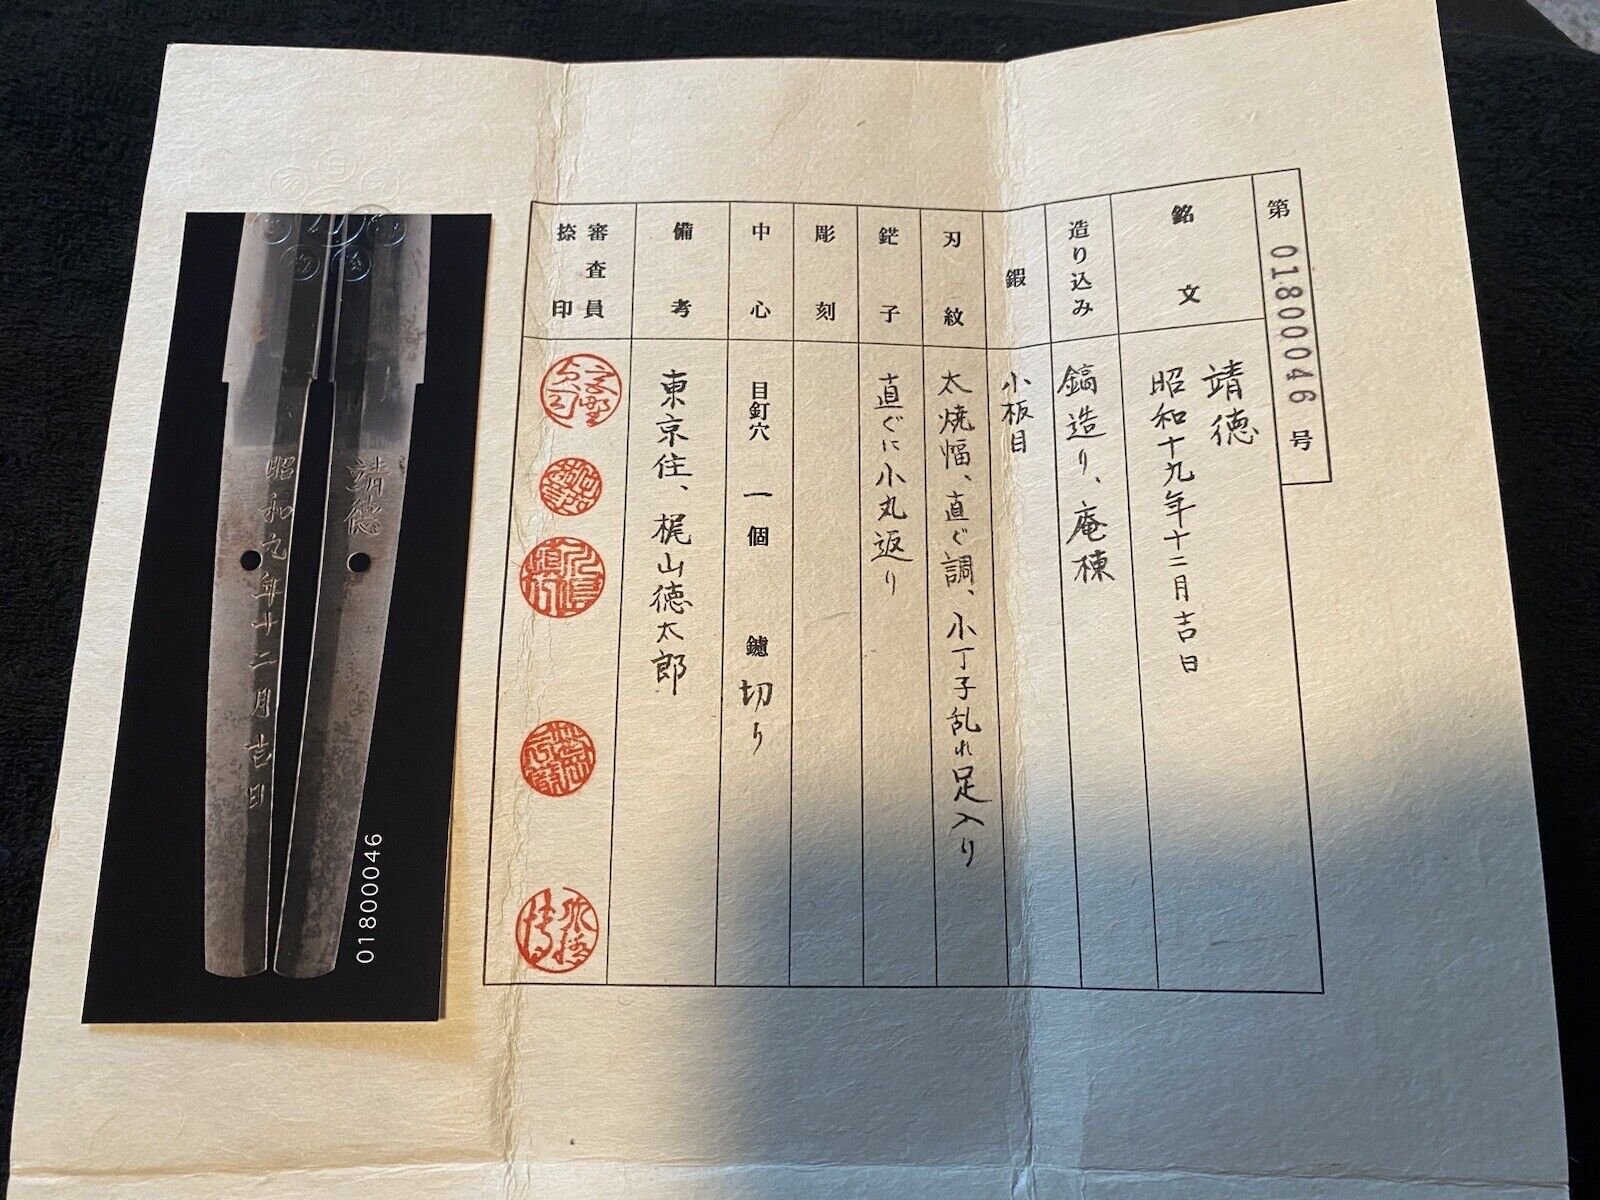 第 01800046 号
銘文
靖徳
昭和十九年十二月吉日
造り込み
鎬造り、庵棟
鍜
小板目
刃紋
太焼幅、直ぐ調、小丁子乱れ足入り
鋩子
直ぐに小丸返り
彫刻
中心
目釘穴 一個 鑢 切り
備考
東京住、梶山徳太郎
審査員
捺印
靖徳
昭和九年十二月吉日
01800046